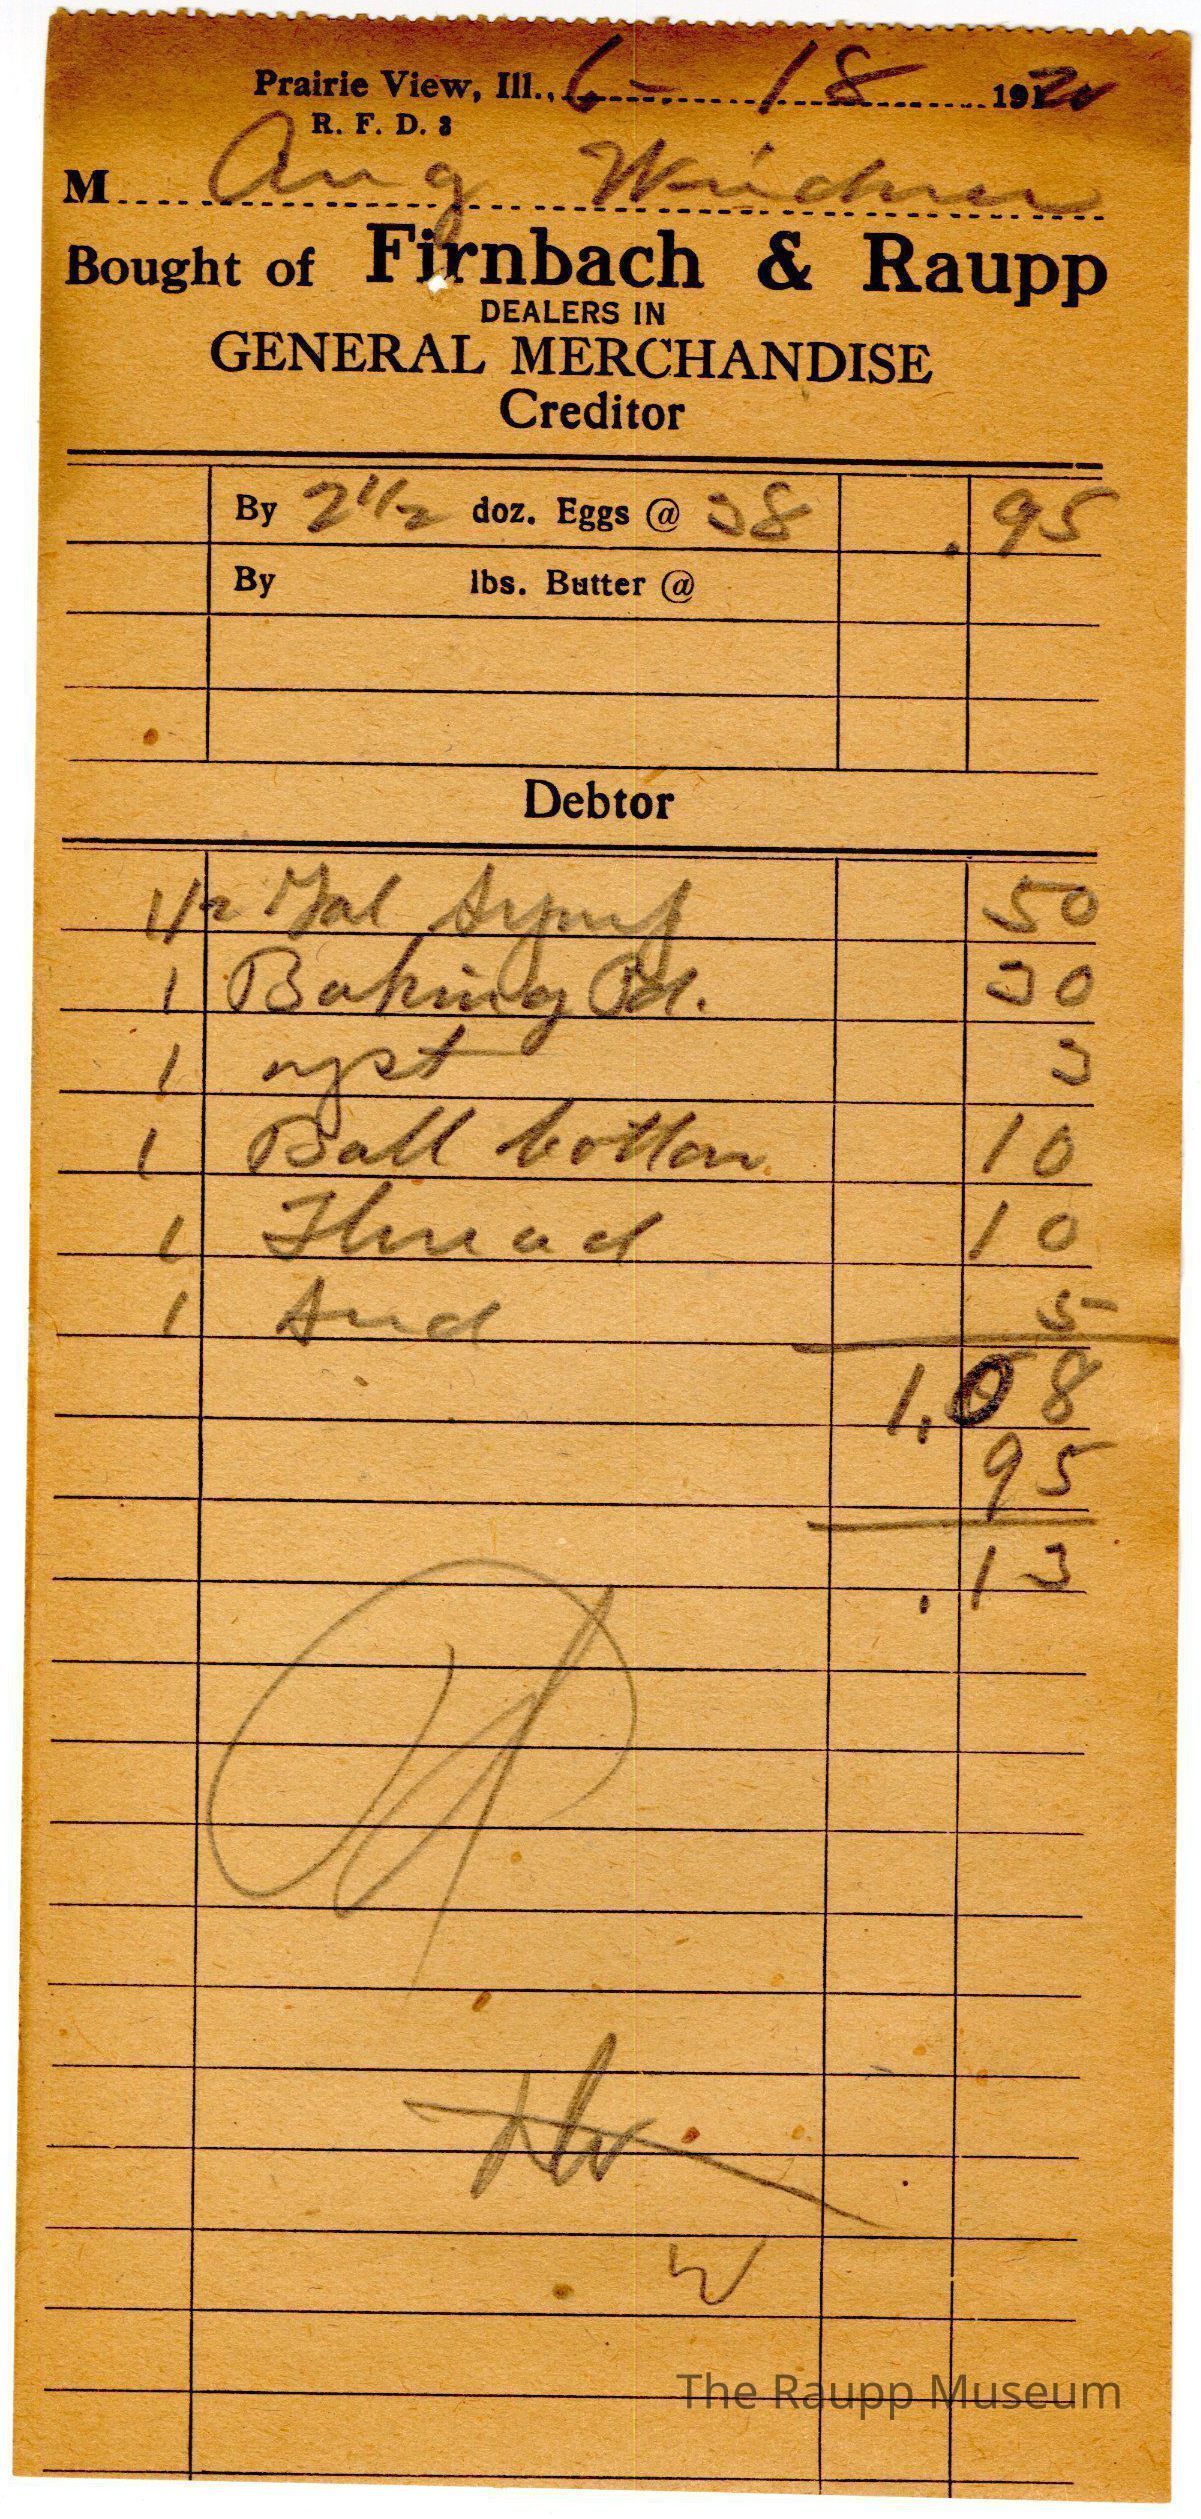 Prairie View, Ill., 6-18 1920
R. F. D. 3
M Aug Weidner
Bought of Firnbach & Raupp
DEALERS IN
GENERAL MERCHANDISE
Creditor
By 2 1/2 doz. Eggs @ 38 .95
By lbs. Butter @
Debtor
1/2 Gal Syrup 50
1 Baking Pd. 30
1 yst 3
1 Ball Cotton 10
1 Thread 10
1 5
1.08
95
.13
The Raupp Museum